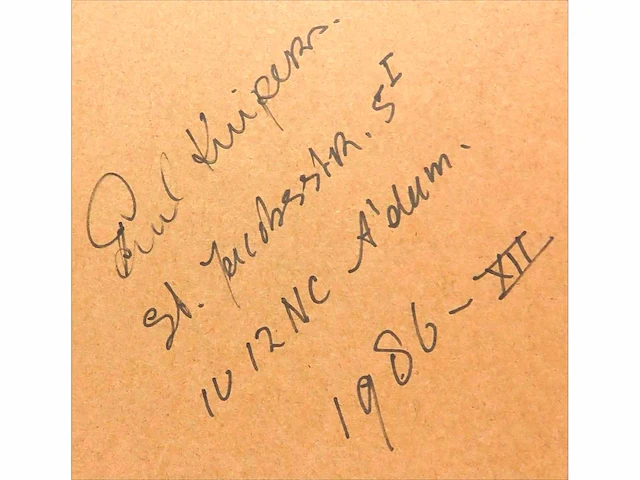 Paul Kuipers.
St. Jacobsstr. 5 I
1012 NC A'dam.
1986 - XII